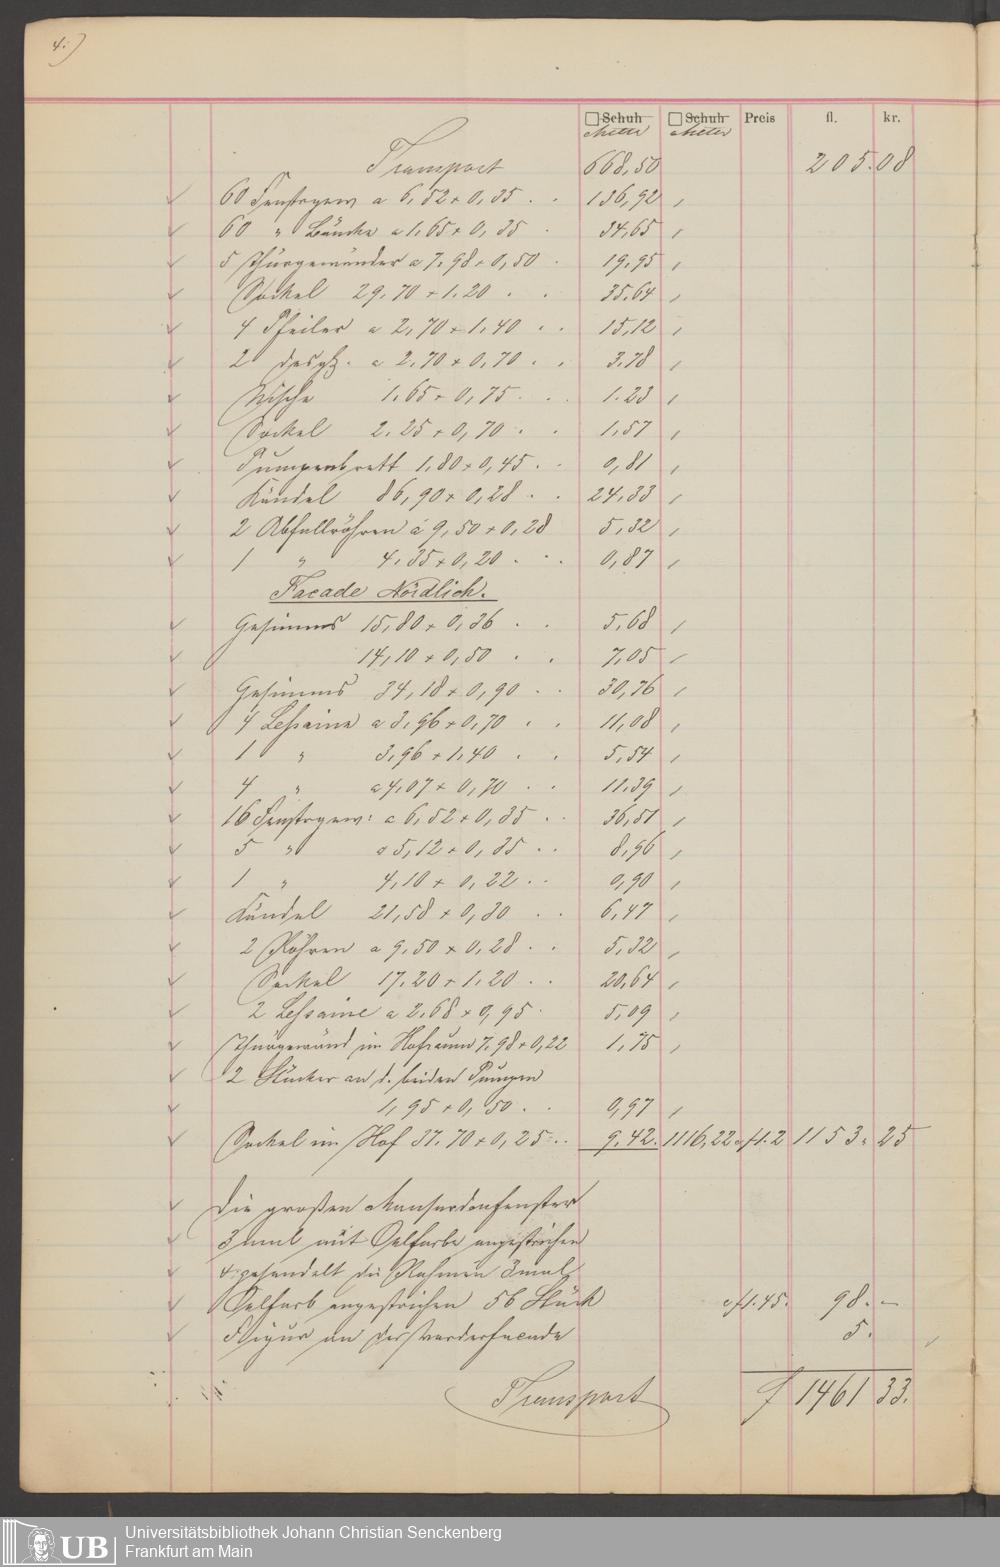 4.)
□ Schuh □ Schuh Preis fl. kr.
Meter Meter
Transport 668,50 205.08
60 Fenstergew a 6,52 + 0,35 . . 136,92 ,
60 " Bänke a 1,65 + 0,35 . 34,65 ,
5 Thürgewänder a 7.98 + 0,50 . 19,95 ,
Sockel 29.70 + 1.20 . . 35.64 ,
4 Pfeiler a 2,70 + 1,40 . . 15,12 ,
2 desgl. a 2.70 + 0,70 . . 3.78 ,
Nische 1.65 + 0,75 . . . 1.23 ,
Sockel 2.25 + 0,70 . . 1,57 ,
Pumpenbrett 1,80 + 0,45 . . 0,81 ,
Kändel 86,90 + 0,28 . . 24,33 ,
2 Abfallröhren á 9,50 + 0,28 5,32 ,
1 " 4.35 + 0,20 . . 0,87 ,
Facade Nördlich.
Gesimms 15,80 + 0,36 . . 5,68 ,
14,10 + 0,50 . . 7,05 ,
Gesimms 34,18 + 0,90 . . 30,76 ,
4 Lessaine a 3,96 + 0,70 . . 11,08 ,
1 " 3,96 + 1,40 . . 5,54 ,
4 " a 4,07 + 0,70 . . 11.39 ,
16 Fenstergew: a 6,52 + 0,35 . . 36,51 ,
5 " a 5,12 + 0,35 . . 8,96 ,
1 " 4,10 + 0,22 . . 0,90 ,
Kändel 21,58 + 0,30 . . 6,47 ,
2 Röhren a 9,50 + 0,28 . . 5,32 ,
Sockel 17.20 + 1.20 . . 20,64 ,
2 Lessaine a 2.68 + 0,95 . 5,09 ,
Thürgewänd im Hofraum 7.98 + 0,22 1,75 ,
2 Stücker an d. beiden Pumpen
1,95 + 0,50 . . 0,97 ,
Sockel im Hof 37.70 + 0,25 . . 9,42. 1116,22 a f 1.2 1153. 25
Die großen Mansardenfenster
3 mal mit Oelfarbe angestrichen
die Rahmen 3 mal
Oelfarb angestrichen 56 Stück a f 1.45. 98. –
Figur an der Vorderfacade 5.
Transport f 1461 33.
UB Universitätsbibliothek Johann Christian Senckenberg
Frankfurt am Main